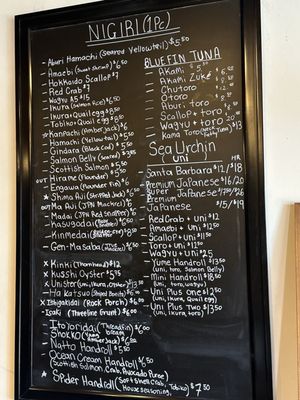 NIGIRI (1PC)
Aburi Hamachi (Seared Yellowtail) $5.50
Amaebi (Sweet Shrimp) $6.50
Hokkaido Scallop $7
Red Crab $7
Wagyu A5 $15
Ikura (Salmon Roe) $6.50
Ikura + Quail egg $8.50
Tobiko + Quail egg $8.50
Kanpachi (Amber Jack) $6
Hamachi (Yellowtail) $5.50
Gindara (Black Cod) $5.50
Salmon Belly (Seared)
Scottish Salmon $5.50
OUT Hirame (Flounder) $5.50
Engawa (Flounder Fin)
X Shima Aji (Striped Jack)
OUT Ma Aji (JPN Mackerel) $6
Madai (JPN Red Snapper) $6
Kasugodai
Kinmedai
Gen-Masaba
X Kinki (Thornhead) $12
X Kusshi Oyster $5.75
X Uni Ster (Uni, Ikura, Oyster)
Hakatsuo
X Ishigakidai (Rock Perch) $6.00
Isaki (Threeline Grunt) $6.00
Itoyoridai (Threadfin)
Shokko
Natto Handroll $5.50
Ocean Cream Handroll $6.50
(Scottish Salmon, Crab, Avocado Puree)
Spider Handroll (Soft Shell Crab, Tobiko, House Seasoning) $7.50
BLUEFIN TUNA
Akami
Akami Zuke
Chutoro
Otoro
Aburi toro
Scallop + toro
Wagyu + toro
Kama Toro
Sea Urchin
(UNI)
HR
Santa Barbara $12/$18
Premium Japanese $16/20
Premium
Japanese $15/$19
Red Crab + uni $12
Amaebi + Uni
Scallop + uni
Toro + uni
Wagyu + uni $25
Yume Handroll
(Uni, toro, Salmon Belly)
Mini Handroll $18.50
(Uni, toro, wagyu)
Uni Plus One $13.50
(Uni, Ikura, Quail egg)
Uni Plus Two $13.50
(Uni, Ikura, toro)